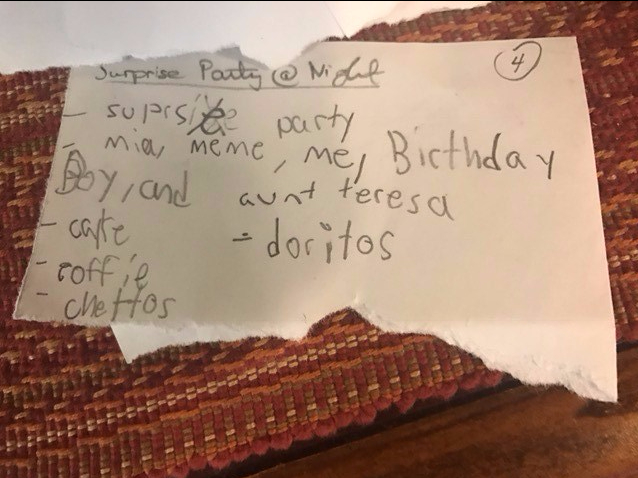 Surprise Party @ Night
4
- suprsise party
- mia, meme, me, Birthday
Boy, and aunt teresa
- cake
= doritos
- coffie
- chettos